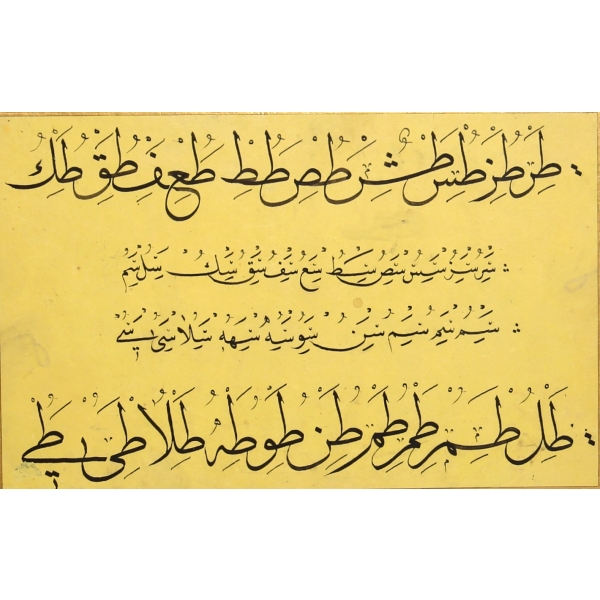 طر طز طس طش طص طط طع طف طق طك
سر سز سس سص سط سع سف سق سك سل سم
سم سم سم سن سو سه سهه سلا سى سے
طل طم طم طم طن طو طه طلا طى طے